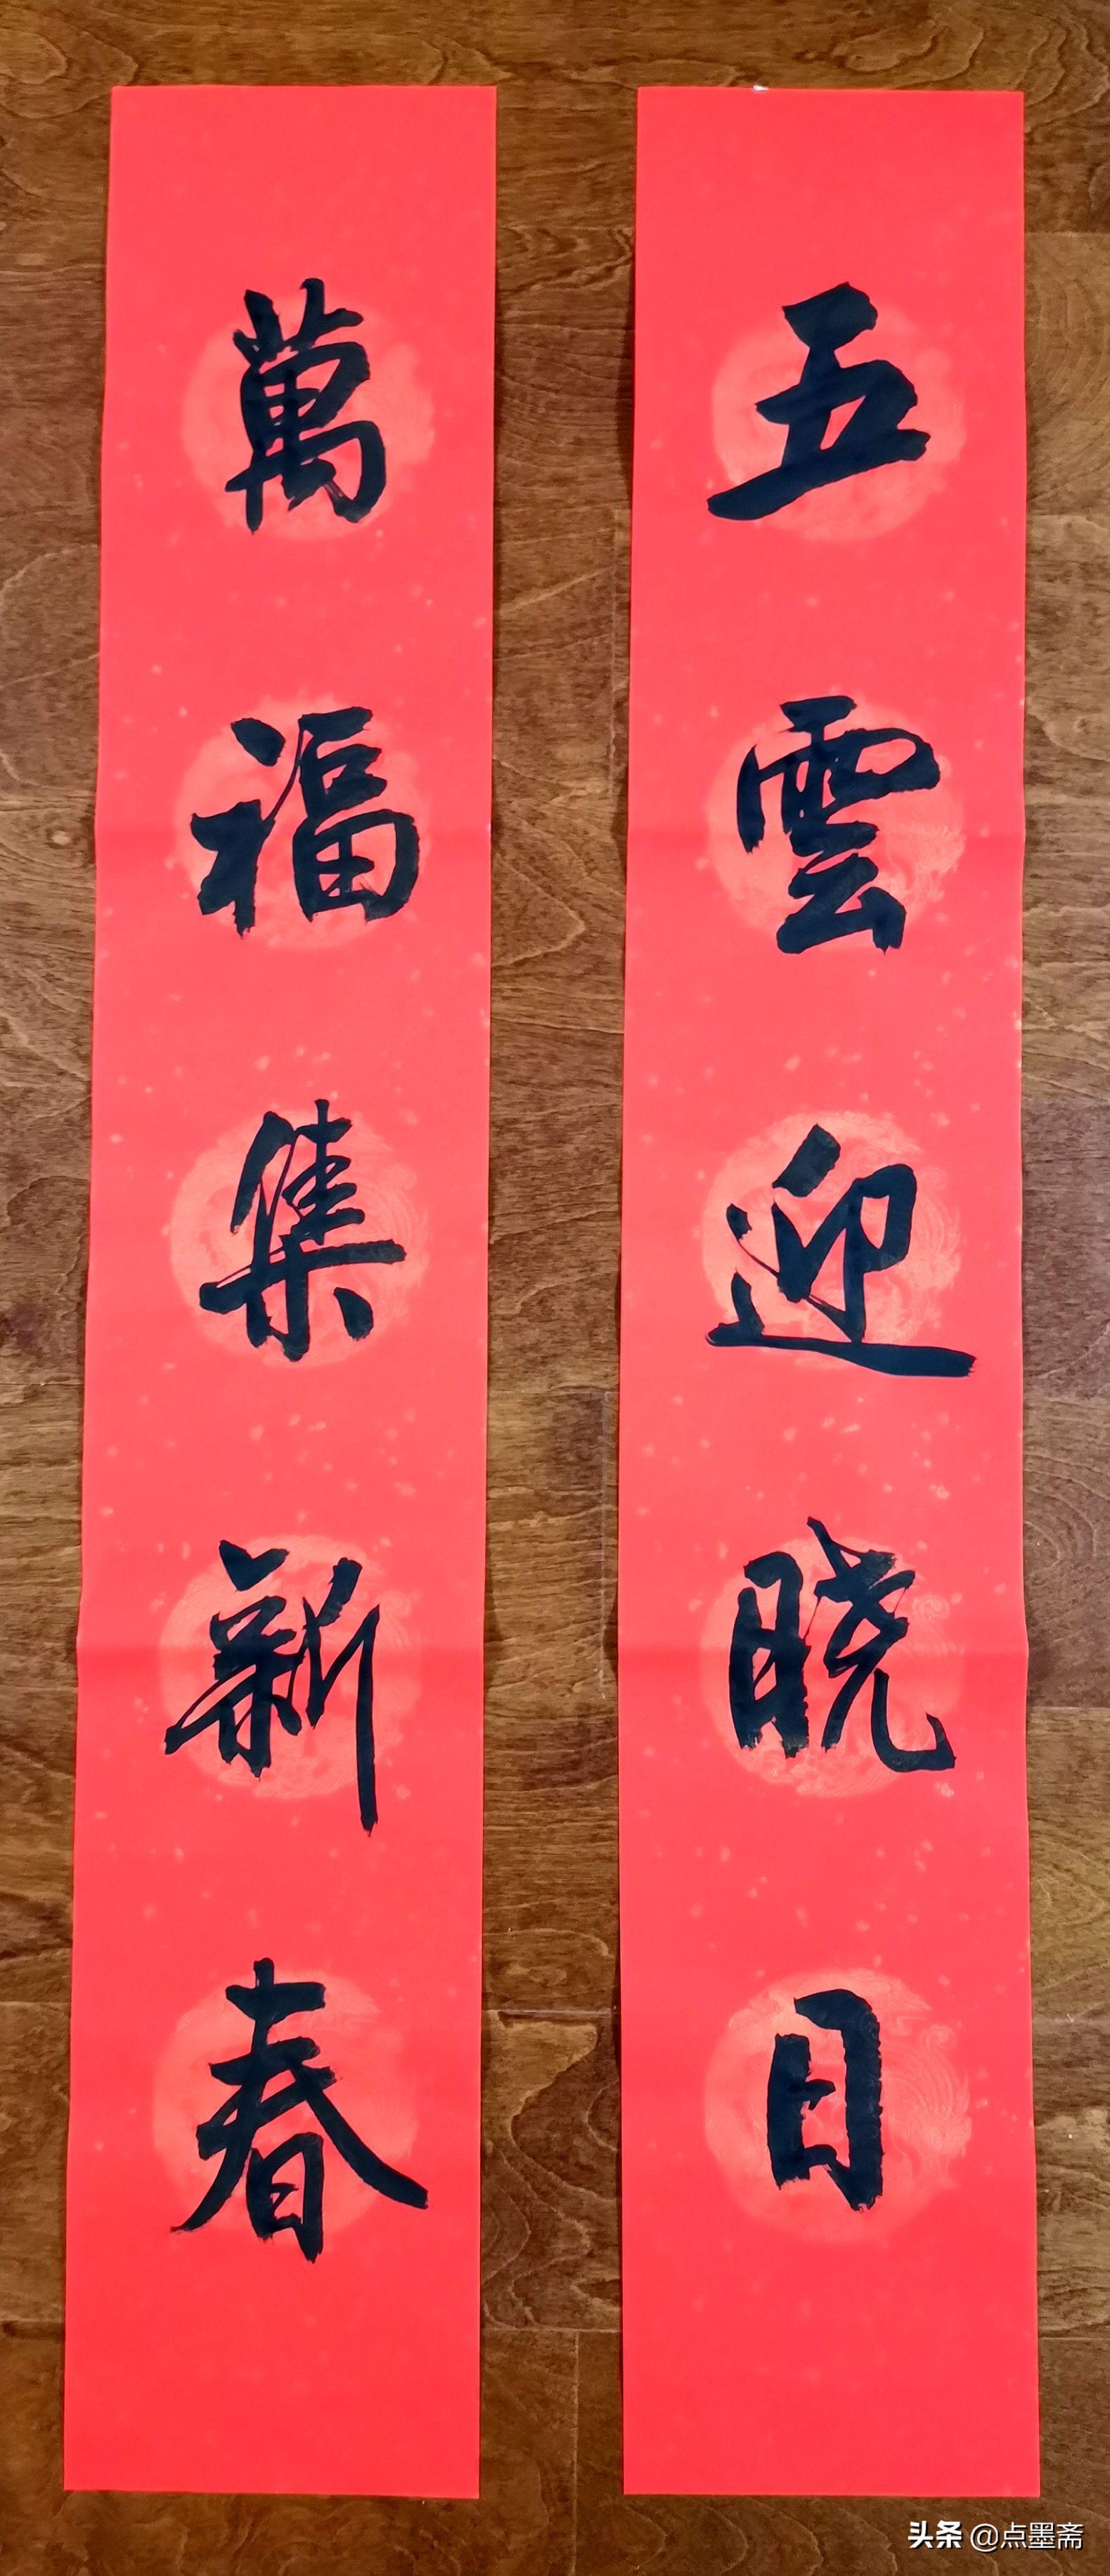 五雲迎晓日
萬福集新春
头条 @点墨斋